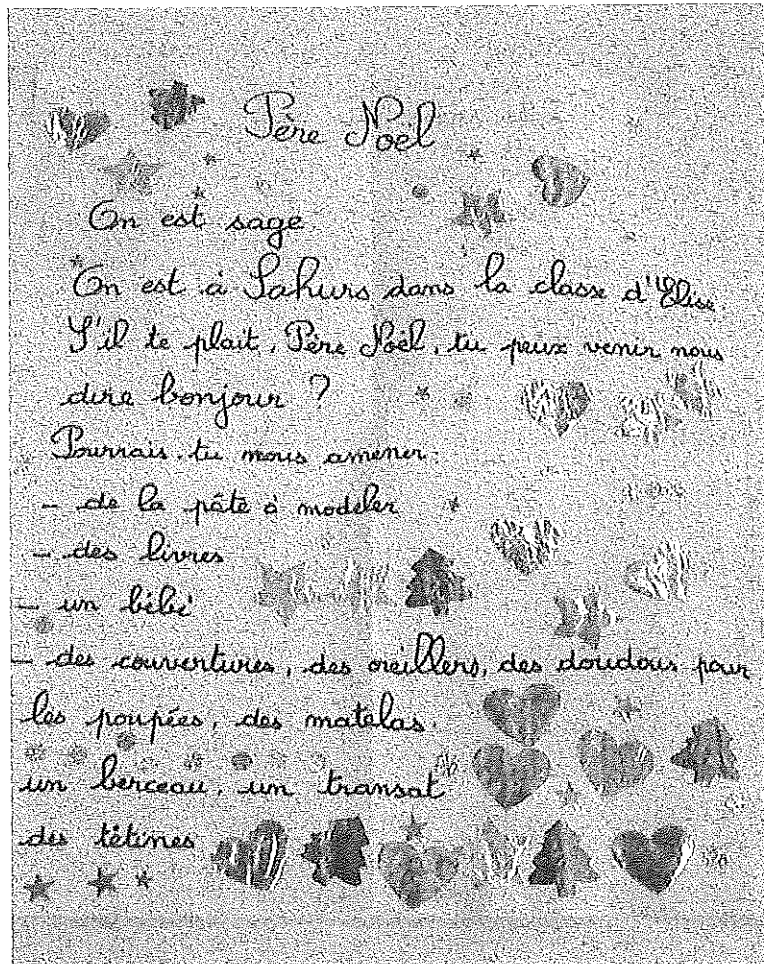 Père Noël
On est sage.
On est à Sahurs dans la classe d'Elise.
S'il te plait, Père Noël, tu peux venir nous
dire bonjour ?
Pourrais-tu nous amener:
- de la pâte à modeler
- des livres
- un bébé
- des couvertures, des oreillers, des doudous pour
les poupées, des matelas.
un berceau, un transat
des tétines